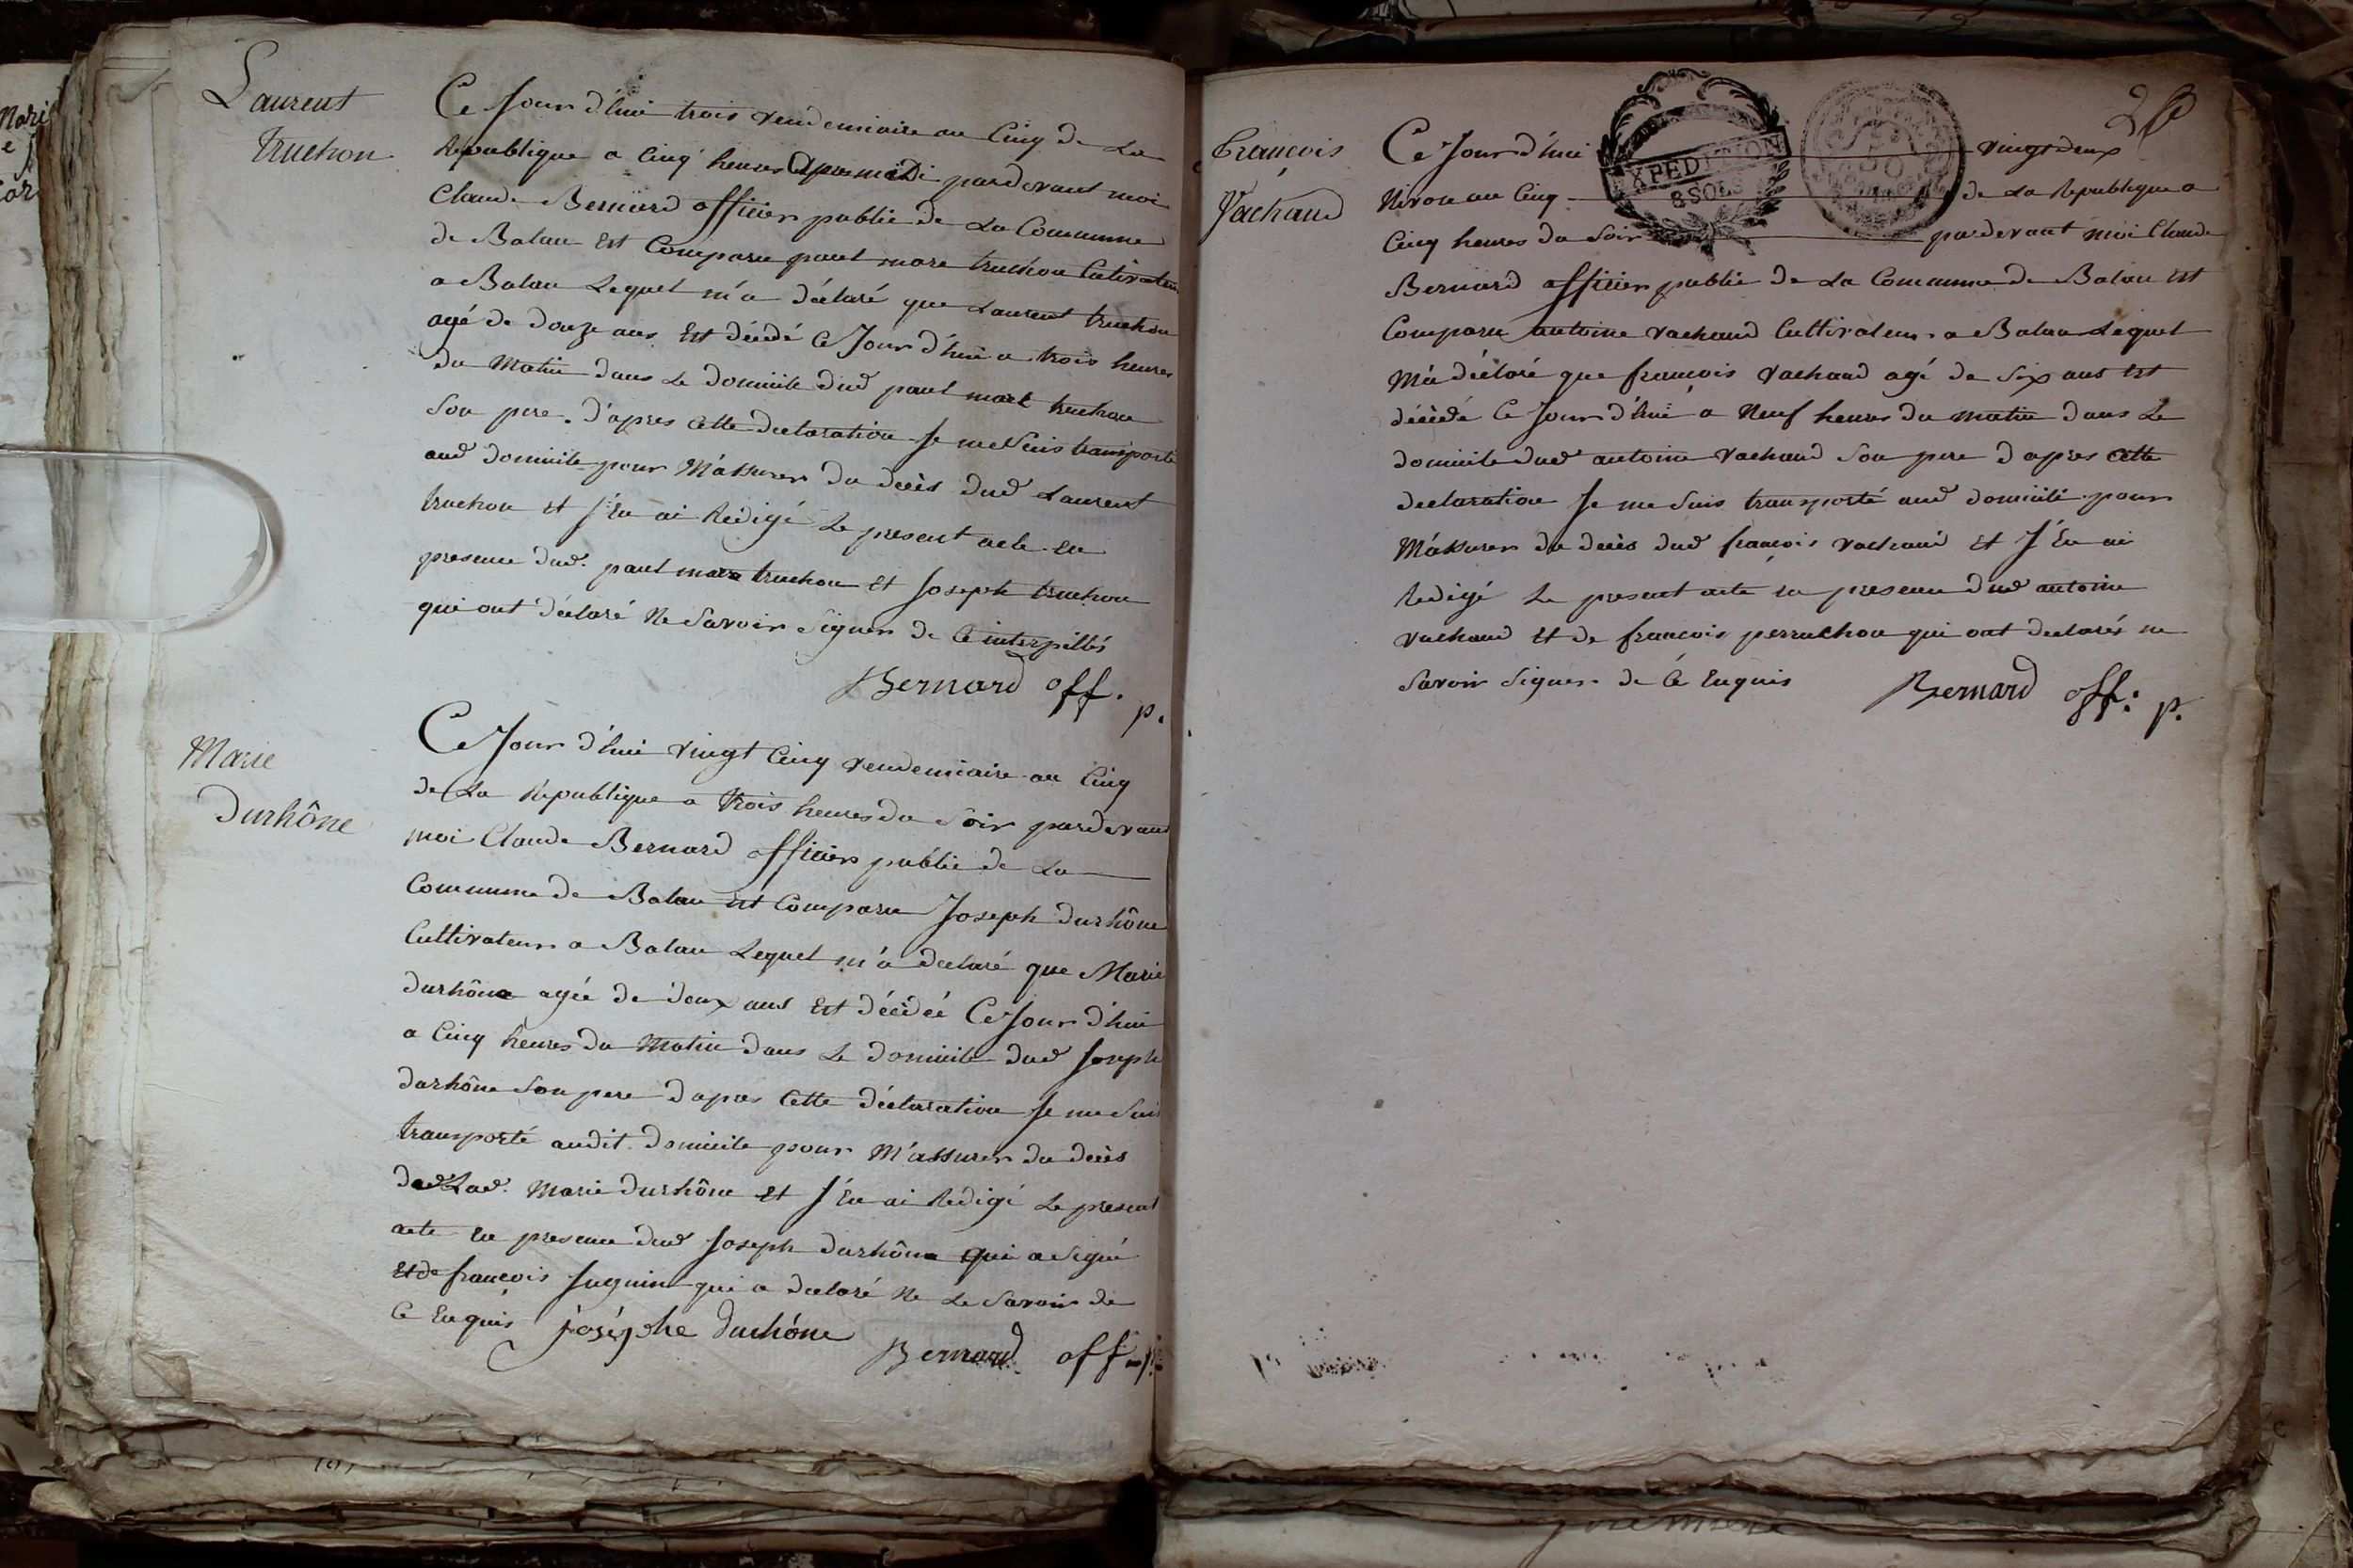 Laurent
truchon
Ce Jourd'hui trois vendemiaire an Cinq de La
Republique a Cinq heures Apresmidi pardevant moi
Claude Bernard officier public de La Commune
de Balan Est Comparu paul marc truchon Cultivateur
a Balan Lequel m'a déclaré que Laurent truchon
agé de douze ans Est décédé Ce Jourd'hui a trois heures
du Matin dans Le domicile dud paul marc truchon
Son pere. d'apres Cette declaration Je me Suis transporté
aud domicile pour M'assurer du decès dud Laurent
truchon Et J'En ai Redigé Le present acte En
presence dud. paul marc truchon Et Joseph truchon
qui ont déclaré Ne Savoir Signer de Ce interpellés
Bernard off. p.
Marie
Durhône
Ce Jourd'hui vingt Cinq vendemiaire an Cinq
de La Republique a trois heures du Soir pardevant
moi Claude Bernard officier public de La
Commune de Balan est Comparu Joseph durhône
Cultivateur a Balan Lequel m'a declaré que Marie
durhône agée de deux ans Est décèdée Ce Jourd'hui
a Cinq heures du Matin dans Le domicile dud Joseph
durhône Son pere d'apres Cette déclaration Je me Suis
transporté audit domicile pour M'assurer du decès
de Lad. Marie durhône Et J'En ai Redigé Le present
acte En presence dud Joseph durhône qui a Signé
Et de françois Juguin qui a declaré Ne Le Savoir de
Ce Enquis josephe durhône
Bernard off. p.
20
François
Vachaud
Ce Jourd'hui vingt deux
Nivose an Cinq de La Republique a
Cinq heures du Soir pardevant moi Claude
Bernard officier public de La Commune de Balan Est
Comparu antoine vachaud Cultivateur a Balan Lequel
M'a déclaré que françois vachaud agé de Six ans Est
décédé Ce Jourd'hui a Neuf heures du matin dans Le
domicile dud antoine vachaud Son pere d'apres Cette
declaration Je me Suis transporté aud domicile pour
M'assurer du decès dud françois vachaud Et J'En ai
Redigé Le present acte en presence dud antoine
vachaud Et de françois perruchon qui ont declarés ne
Savoir Signer de Ce Enquis
Bernard off. p.
XPEDITION
8 SOLS